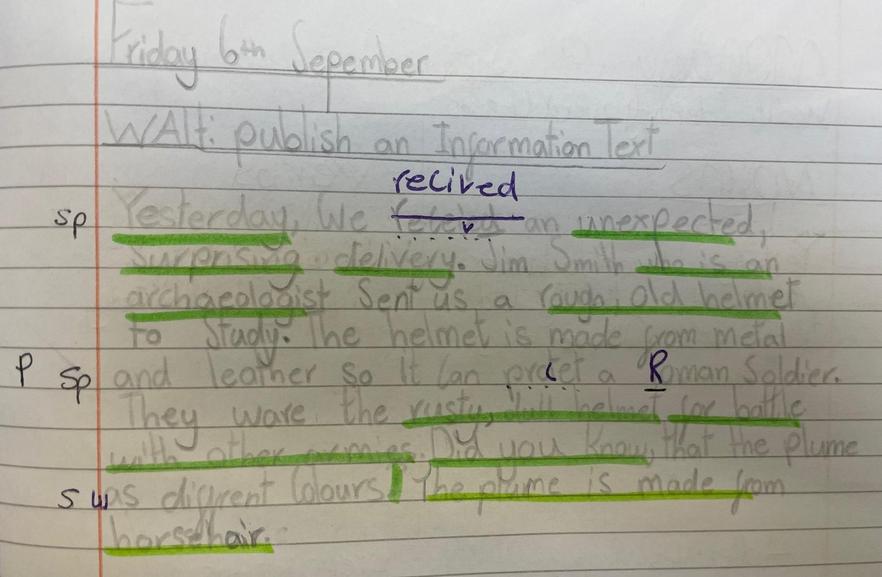 Friday 6th Sepember
WALt: publish an Information Text
recived
sp Yesterday, We an unexpected,
surprising delivery. Jim Smith who is an
archaeologist Sent us a rough, old helmet
to study. The helmet is made from metal
P sp and leather so it can a Roman Soldier.
They ware the rusty, dull helmet for battle
with other armies. Did you know, that the plume
s was difrent Colours! The plume is made from
horsehair.